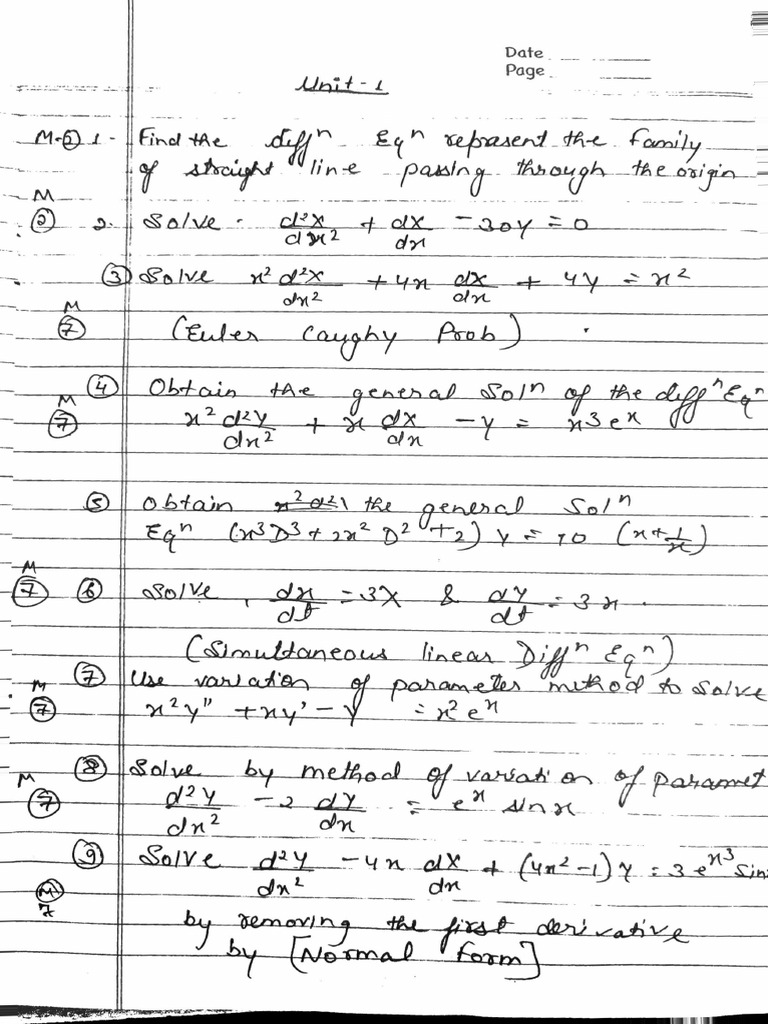 Date
Page
Unit-1
M-② 1- Find the diffⁿ Eqⁿ represent the family
of straight line passing through the origin
M
② 2. Solve. d²X/dx² + dX/dx - 30Y = 0
③ Solve x² d²X/dx² + 4x dX/dx + 4Y = x²
M
⑦ (Euler Caughy Prob)
④ Obtain the general Solⁿ of the diffⁿ Eqⁿ
M
⑦ x² d²Y/dx² + x dX/dx - Y = x3eˣ
⑤ Obtain the general Solⁿ
Eqⁿ (x³D³ + 2x² D² + 2) Y = 10 (x + 1/x)
M
⑦ ⑥ Solve, dx/dt = 3X & dY/dt = 3x.
(Simultaneous linear Diffⁿ Eqⁿ)
⑦ Use variation of parameter method to solve
M
⑦ x²y" + xy' - Y = x²eˣ
⑧ Solve by method of variation of paramet
M
⑦ d²Y/dx² - 2 dY/dx = eˣ sinx
⑨ Solve d²Y/dx² - 4x dX/dx + (4x² - 1) Y = 3 e^x3 Sin
M
7
by removing the first derivative
by [Normal form]